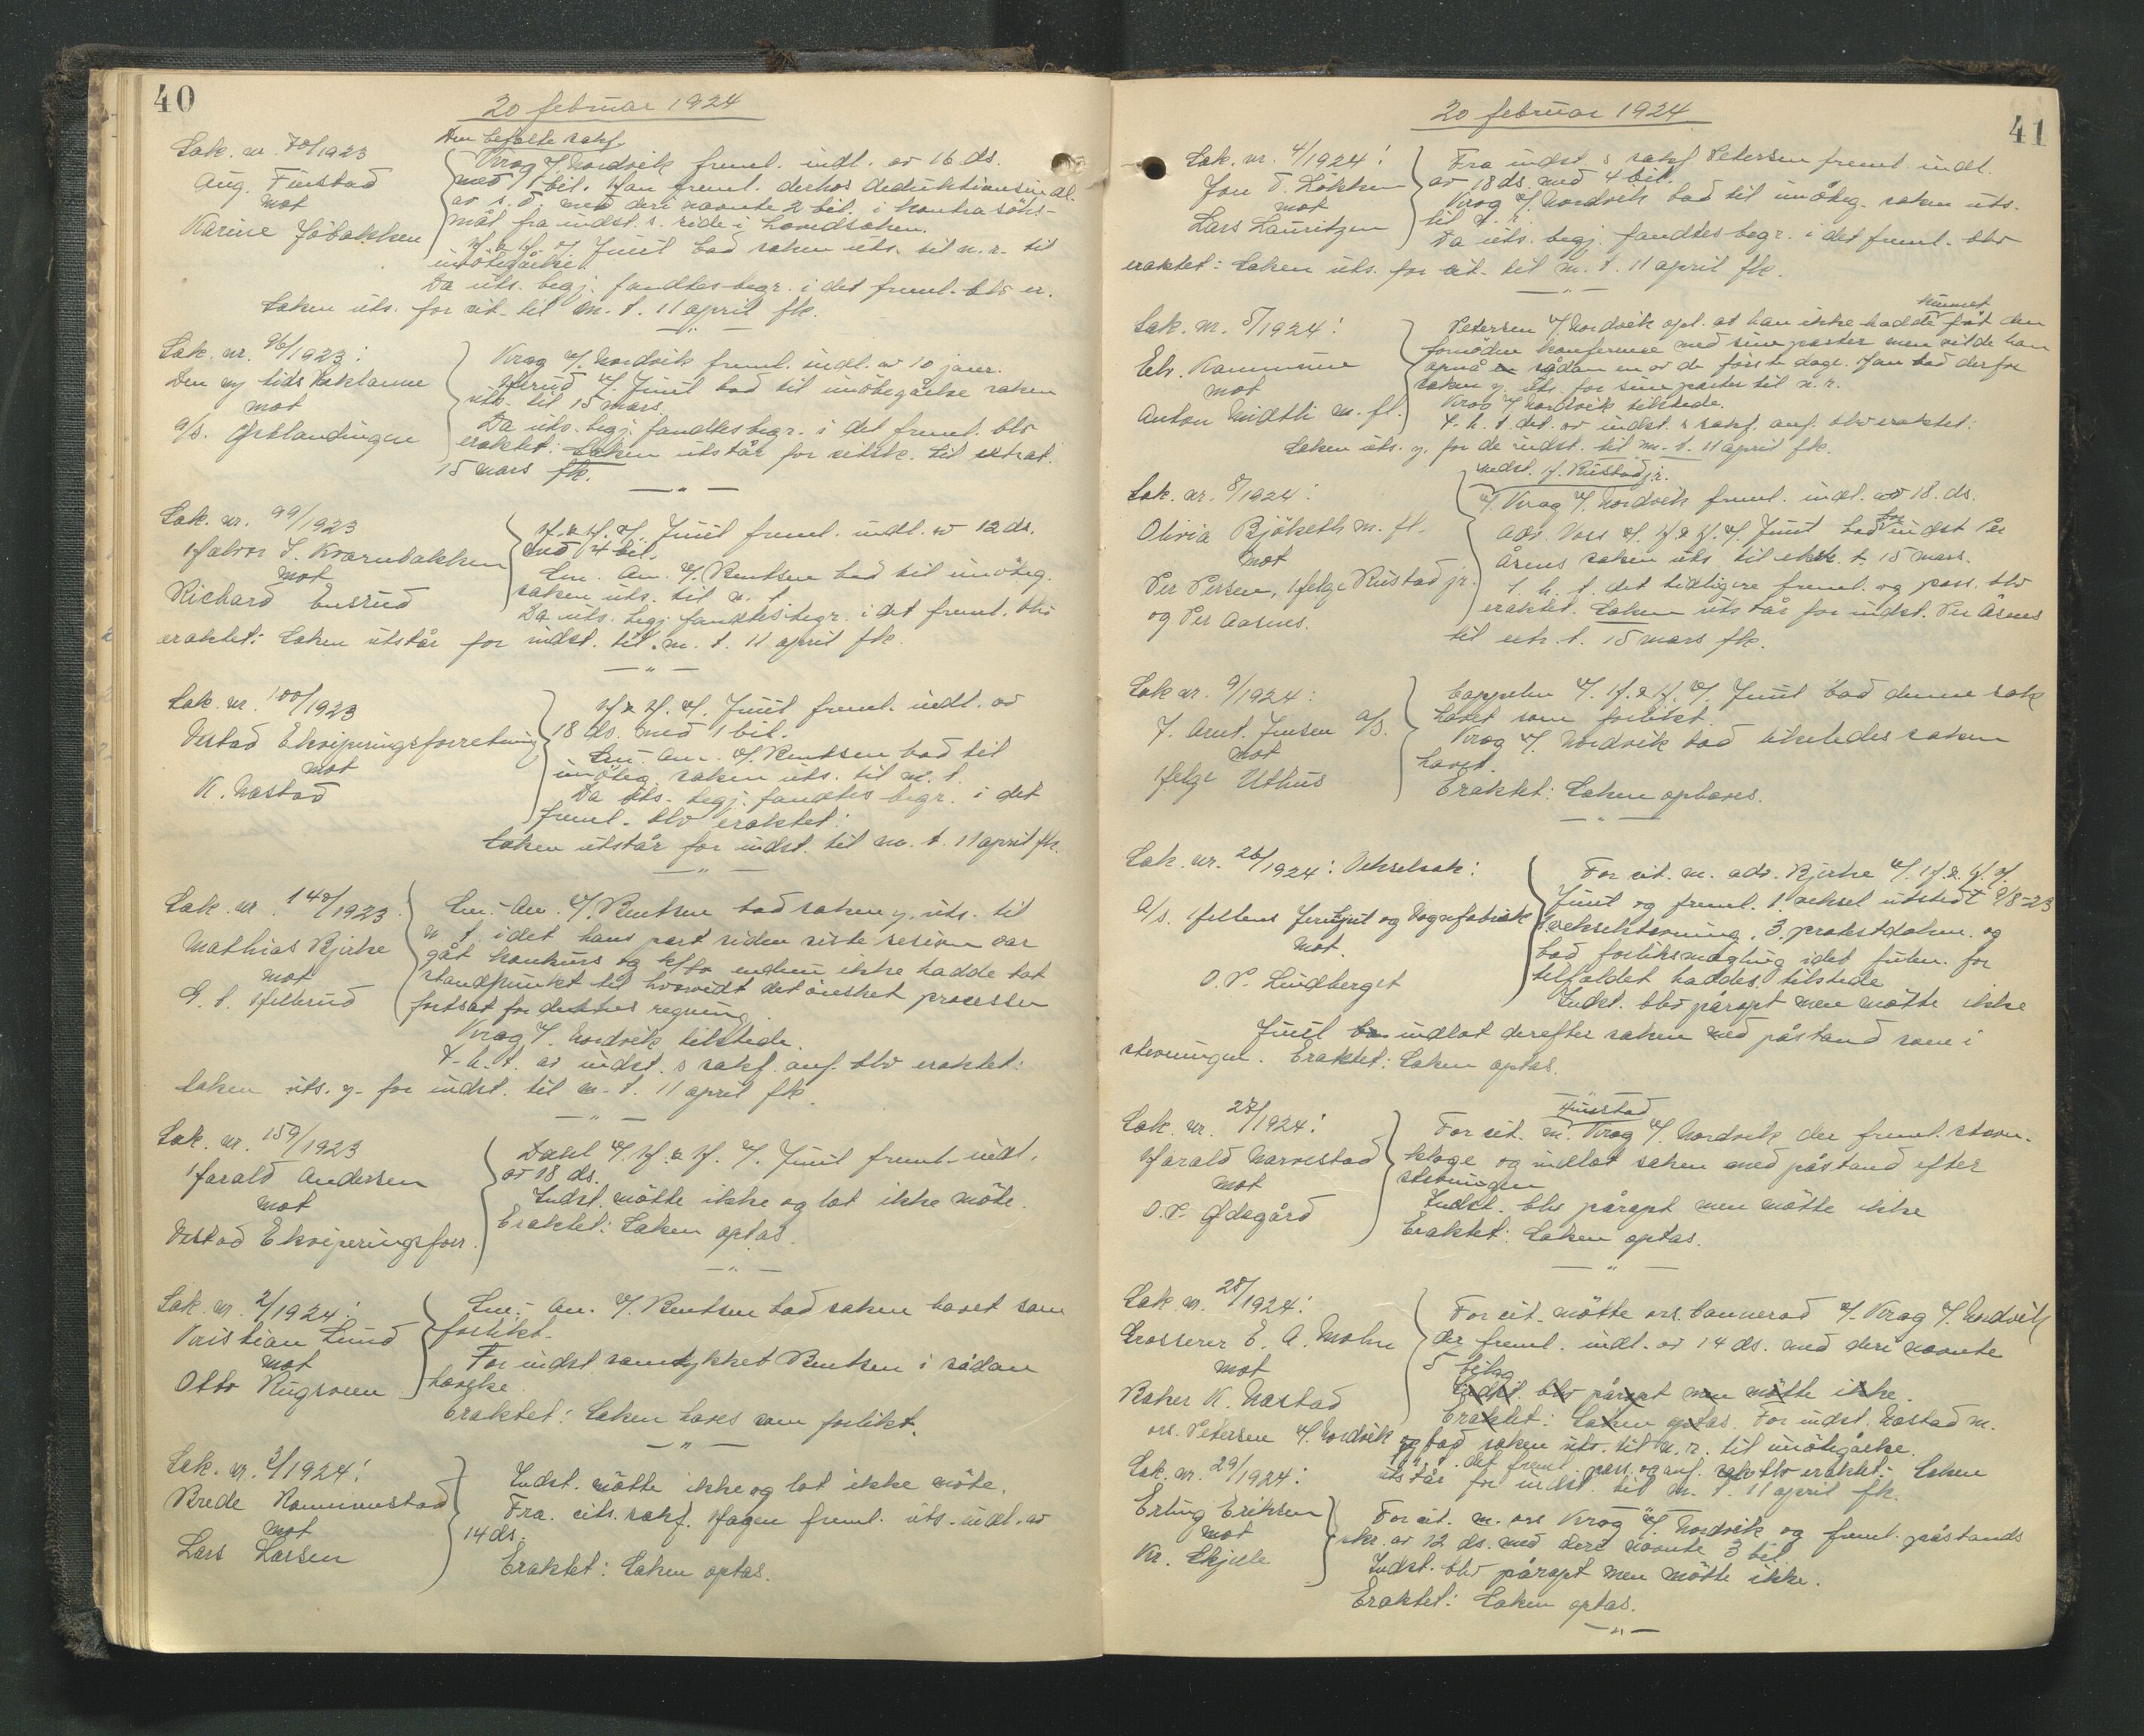 40
20 februar 1924
Sak. nr. 70/1923
Aug. Finstad
mot
Karine Jöbakken
Den befalte sakf.
Krog v/ Nordvik freml. indl. av 16 ds.
med 1 bil. Han freml. derhos deduktionsindl.
av s. d. med deri nævnte 2 bil. i kontrasöks-
mål fra indst. s. side i hovedsaken.
H. & H. v/ Juul bad saken uts. til n. r. til
imötegåelse.
Da uts. begj. fandtes begr. i det freml. blv er.
Saken uts. for cit. til m. t. 11 april fk.
Sak. nr. 96/1923:
Den ny tids
mot
A/S. Østlendingen
Krog v/ Nordvik freml. indl. av 10 januar.
v/ Juul bad til imötegåelse saken
uts. til 15 mars.
Da uts. begj. fandtes begr. i det freml. blv
eraktet: Saken utstår for citste. til extrat.
15 mars fk.
Sak. nr. 99/1923
Halvor J. Kvarnbakken
mot
Richard Ensrud
H. & H. v/. Juul freml. indl. av 12 ds.
med 4 bil.
Em. An. v/. Bentsen bad til imöteg.
saken uts. til n. t.
Da uts. begj. fandtes begr. i det freml. blv
eraktet: Saken utstår for indst. til m. t. 11 april fk.
Sak. nr. 100/1923
Vestad Ekviperingsforretning
mot
K. Nastad
H & H. v/. Juul freml. indl. av
18 ds. med 1 bil.
Em. An. v/. Bentsen bad til
imöteg. saken uts. til m. t.
Da uts. begj. fandtes begr. i det
freml. blv eraktet:
Saken utstår for indst. til m. t. 11 april fk.
Sak. nr. 148/1923
Mathias Bjerke
mot
G. S. Hellerud
Em. An. v/. Bentsen bad saken y. uts. til
n. t. idet hans part siden siste sesion var
gåt konkurs og endnu ikke hadde tat
standpunkt til hvorvidt det önsket processen
fortsat for dettes regning.
Krog v/. Nordvik tilstede.
T. h. t. av indst. s sakf. anf. blv eraktet:
Saken uts. y. for indst. til m. t. 11 april fk.
Sak. nr. 159/1923
Harald Andersen
mot
Vestad Ekviperingsforr.
Dahl v/. H. & H. v/. Juul freml. indl.
av 18 ds.
Indst. mötte ikke og lot ikke möte.
Eraktet: Saken optas.
Sak. nr. 2/1924:
Kristian Lund
mot
Otto Rugsveen
Em. An. v/. Bentsen bad saken hævet som
forlikt.
For indst. samtykket Bentsen i sådan
hævelse.
Eraktet: Saken hæves som forlikt.
Sak. nr. 3/1924:
Brede Rommenstad
mot
Lars Larsen
Indst. mötte ikke og lot ikke möte.
Fra. cits. sakf. Hagen freml. uts. indl. av
14 ds.
Eraktet: Saken optas.
41
20 februar 1924
Sak. nr. 4/1924:
Jon O. Løkken
mot
Lars Lauritzen
Fra indst. s sakf Petersen freml. indl.
av 18 ds. med 4 bil.
Krog v/ Nordvik bad til imöteg. saken uts.
til n. r.
Da uts. begj. fandtes begr. i det freml. blv
eraktet: Saken uts. for cit. til m. t. 11 april fk.
Sak. nr. 5/1924:
Elv. Kommune
mot
Anton Midtli m. fl.
Petersen v/. Nordvik opl. at han ikke hadde kunnet fåt den
fornödne konferense med sine parter men vilde han
opnå en sådan en av de förste dage. Han bad derfor
saken y. uts. for sine parter til n. r.
Krog v/. Nordvik tilstede.
T. h. t. det. av indst. s sakf. anf. blv eraktet:
Saken uts. y. for de indst. til m. t. 11 april fk.
Sak. nr. 8/1924:
Olivia Bjöketh m. fl.
mot
Per Persen, Helge Rustad jr.
og Per Aasnes.
indst. H. Rustad jr.
v/. Krog v/. Nordvik freml. indl. av 18. ds.
Adv. Voss v/. H & H. v/. Juul bad for indst Per
Åsnes saken uts til ekstr. t. 15 mars.
T. h. t. det tidligere freml. og pass. blv
eraktet. Saken utstår for indst. Per Åsnes
til extr. t. 15 mars fk.
Sak nr. 9/1924:
J. Arnt. Jensen A/S.
mot
Helge Uthus
Cappelen v/. H. & H. v/. Juul bad denne sak
hævet som forlikt.
Krog v/. Nordvik bad likeledes saken
hævet.
Eraktet: Saken ophæves.
Sak. nr. 26/1924: Vekselsak:
A/S. Hellens Jernstøperi og Vognfabrik
mot.
O. P. Lindberget
For cit. m. adv. Bjerke v/. H. & H. v/.
Juul og freml. 1 veksel utstedt 9/8-23
1 vekselstevning, 3. protestdokum. og
bad forliksmægling idet fuldm. for
tilfældet haddes tilstede
Indst. blv påropt men mötte ikke
Juul indlot derefter saken med påstand som i
stevningen. Eraktet: Saken optas.
Sak. nr. 27/1924:
Harald Narvestad
mot
O. P. Ødegård
For cit. m. Krog v/. Nordvik der freml. stevn.
klage og indlot saken med påstand efter
stevningen
Indst. blv påropt men mötte ikke
Eraktet: Saken optas.
Sak. nr. 28/1924:
Grosserer E. A. Mohn
mot
Baker K. Nastad
For cit. mötte ors. Cannerod v/. Krog v/. Nordvik
der freml. indl. av 14 ds. med deri nævnte
5 bilag
Indst. blv påropt men mötte ikke.
Eraktet: Saken optas. For indst. Nastad m.
ors. Petersen v/. Nordvik og bad saken uts. til n. r. til imötegåelse.
T. h. t. det freml. pass. og anf. blv eraktet: Saken
utstår for indst. til m. t. 11 april fk.
Sak. nr. 29/1924:
Erling Eriksen
mot
Kr. Skjelle
For cit. m. ors Krog v/. Nordvik og freml. påstands
skr. av 12 ds. med deri nævnte 3 bil.
Indst. blv påropt men mötte ikke.
Eraktet: Saken optas.